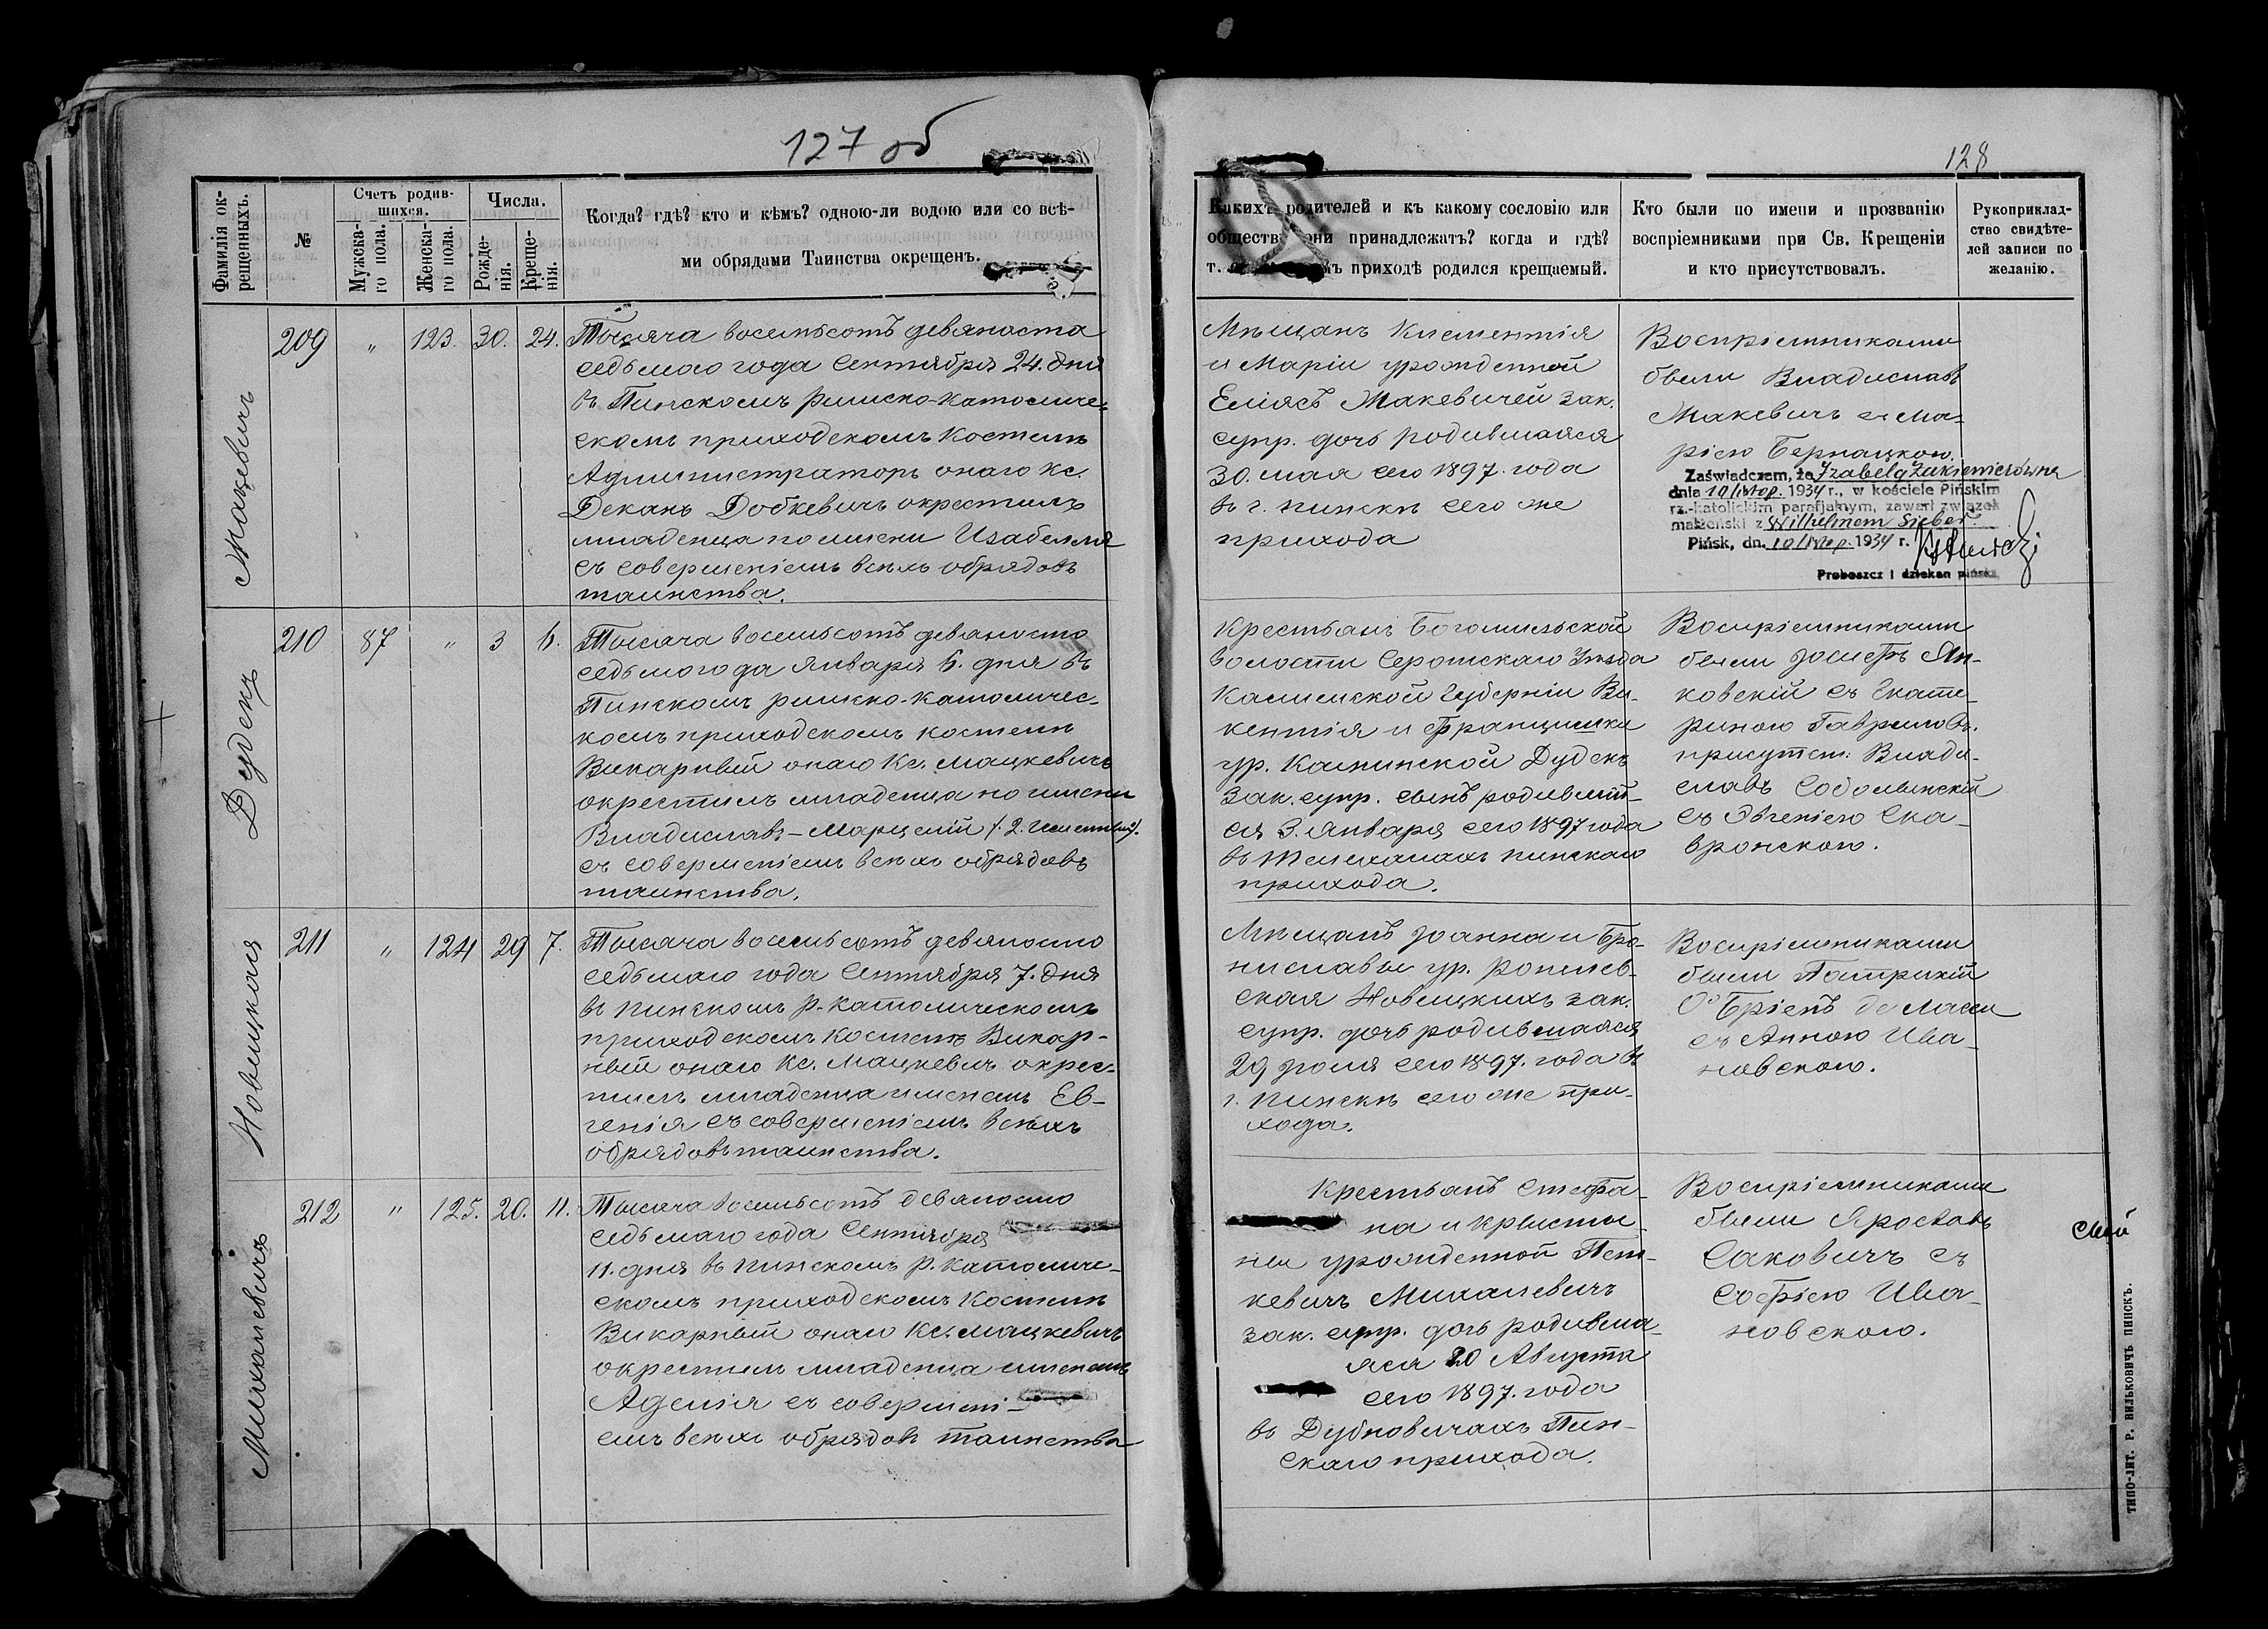 127 об
128
Фамилія ок-
рещенныхъ.
№
Счетъ родив-
шихся.
Мужска-
го пола.
Женска-
го пола.
Числа.
Рожде-
нія.
Креще-
нія.
Когда? гдѣ? кто и кѣмъ? одною-ли водою или со всѣ-
ми обрядами Таинства окрещенъ.
Какихъ родителей и къ какому сословію или
обществу они принадлежатъ? когда и гдѣ?
т. приходѣ родился крещаемый.
Кто были по имени и прозванію
воспріемниками при Св. Крещеніи
и кто присутствовалъ.
Рукоприклад-
ство свидѣте-
лей записи по
желанію.
Мацевичъ
209 " 123. 30. 24.
Тысяча восемьсотъ девяноста
седьмаго года Сентября 24. дня
въ Пинскомъ Римско-католиче-
скомъ приходскомъ Костелѣ
Администраторъ онаго Кс.
Деканъ Добкевичъ окрестилъ
младенца по имени Изабелля
съ совершеніемъ всѣхъ обрядовъ
таинства.
Мѣщанъ Климентія
и Маріи урожденной
Еліясъ Макевичей зак.
супр. дочь родившаяся
30. мая сего 1897. года
въ г. Пинскѣ сего же
прихода
Воспріемниками
были Владиславъ
Макевичъ съ Ма-
ріею Бернацкою.
Zaświadczem, że Izabela Zukiewiczówna
dnia 10 listop. 1934 r., w kościele Pińskim
rz.-katolickim parafjalnym, zawarł związek
małżeński z Wilhelmem Sieber
Pińsk, dn. 10 listop. 1934 r.
Proboszcz i dziekan piński
Дудекъ
210 87 " 3 6.
Тысяча восемьсотъ девяносто
седьмого да Января 6. дня въ
Пинскомъ римско-католичес-
комъ приходскомъ костелѣ
Викарный онаго Кс. Мацкевичъ
окрестилъ младенца по имени
Владиславъ-Марцелій
съ совершеніемъ всѣхъ обрядовъ
таинства.
Крестьянъ
волости Серотскаго Уѣзда
Калишской Губерніи Ви-
кентія и Францишки
ур. Калинской Дудекъ
зак. супр. сынъ родившій-
ся 3. Января сего 1897 года
въ Телеханахъ пинскаго
прихода.
Воспріемниками
были Іосифъ Ян-
ковскій съ Екате-
риною Гавриловъ.
присутст: Влади-
славъ Соболевскій
съ Эвгеніею Ска-
вронскою.
Новицкая
211 " 124 29 7.
Тысяча восемьсотъ девяносто
седьмаго года Сентября 7. дня
въ Пинскомъ р.-католическомъ
приходскомъ Костелѣ Викар-
ный онаго Кс. Мацкевичъ окрес-
тилъ младенца именемъ Ев-
генія съ совершеніемъ всѣхъ
обрядовъ таинства.
Мѣщанъ Іоанна и Бро-
ниславы ур.
ская Новицкихъ зак.
супр. дочь родившаяся
29 Іюля сего 1897. года въ
г. Пинскѣ сего же при-
хода.
Воспріемниками
были Патрикій
О'Бріенъ де Ласси
съ Анною Ива-
новскою.
Михалевичъ
212 " 125. 20. 11.
Тысяча восемьсотъ девяносто
седьмаго года Сентября
11. дня въ Пинскомъ р. католиче-
скомъ приходскомъ Костелѣ
Викарный онаго Кс. Мацкевичъ
окрестилъ младенца именемъ
Аделія съ совершені-
емъ всѣхъ обрядовъ таинства
Крестьянъ Стефа-
на и Кристы-
ны урожденной Пет-
кевичъ Михалевичъ
зак. супр. дочь родивша-
яся 20 Августа
сего 1897. года
въ Дубновичахъ Пин-
скаго прихода.
Воспріемниками
были Ярославъ
Саковичъ съ
Софіею Ива-
новскою.
ТИПО-ЛИТ. Р. ВИЛЬКОВИЧЪ ПИНСКЪ.